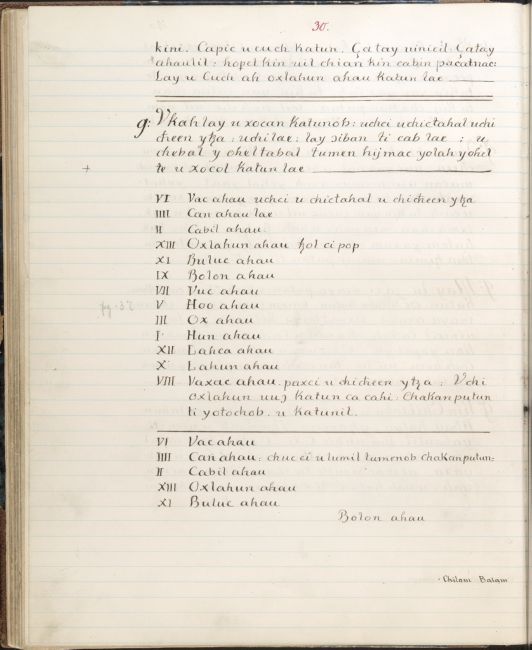 30.
kini. Capic u cuch katun. Ça tay uinicil: Çatay
ahaulil: hopel kin uil chian kin cabin pacatnac:
Lay u Cuch ah oxlahun ahau katun lae
g: Vkahlay u xocan katunob: uchci uchictahal uchi
cheen ytza: uchi lae: lay ɔiban ti cab lae ; u
chebal y oheltabal tumen hijmac yolah yohel
te u xocol katun lae
+
VI Vac ahau uchci u chictahal u chicheen ytza
IIII Can ahau lae
II Cabil ahau.
XIII Oxlahun ahau tzol ci pop
XI Buluc ahau
IX Bolon ahau
VII Vuc ahau
V Hoo ahau
III Ox ahau
I Hun ahau
XII Lahca ahau
X Lahun ahau
VIII Vaxac ahau. paxci u chicheen ytza: Vchi
oxlahun uuɔ katun ca cahi: Chakanputun
ti yotochob. u katunil.
VI Vac ahau
IIII Can ahau: chuc ci u lumil tumenob Chakanputun:
II Cabil ahau
XIII Oxlahun ahau
XI Buluc ahau
Bolon ahau
Chilam Balam